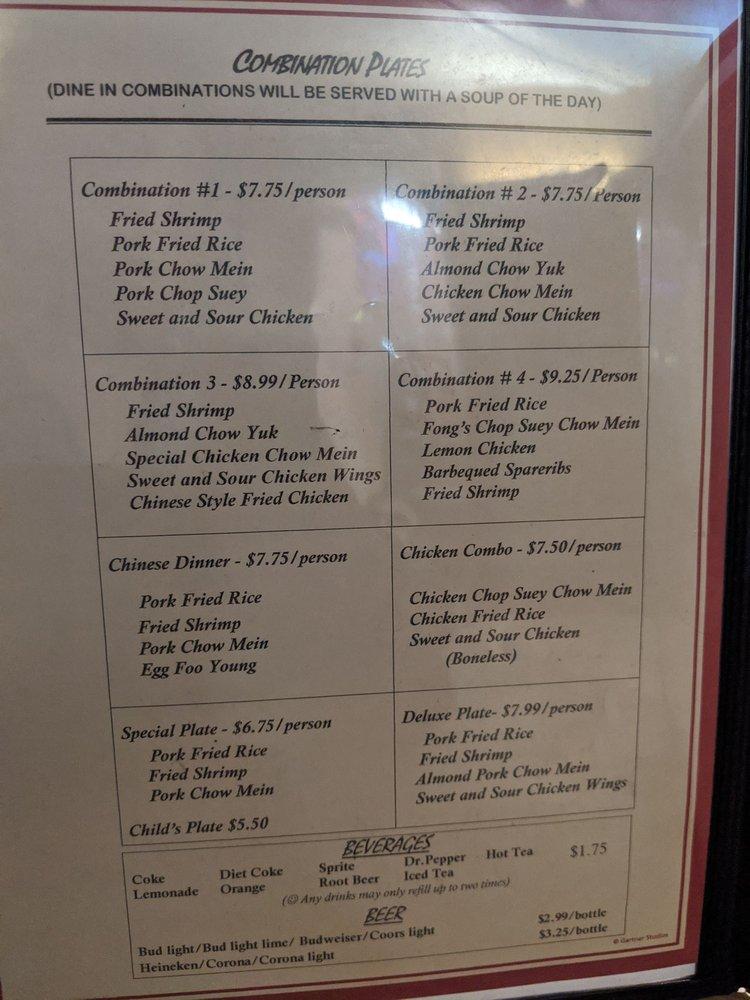 COMBINATION PLATES
(DINE IN COMBINATIONS WILL BE SERVED WITH A SOUP OF THE DAY)
Combination #1 - $7.75/person
Fried Shrimp
Pork Fried Rice
Pork Chow Mein
Pork Chop Suey
Sweet and Sour Chicken
Combination # 2 - $7.75/Person
Fried Shrimp
Pork Fried Rice
Almond Chow Yuk
Chicken Chow Mein
Sweet and Sour Chicken
Combination 3 - $8.99/Person
Fried Shrimp
Almond Chow Yuk
Special Chicken Chow Mein
Sweet and Sour Chicken Wings
Chinese Style Fried Chicken
Combination # 4 - $9.25/Person
Pork Fried Rice
Fong's Chop Suey Chow Mein
Lemon Chicken
Barbequed Spareribs
Fried Shrimp
Chinese Dinner - $7.75/person
Pork Fried Rice
Fried Shrimp
Pork Chow Mein
Egg Foo Young
Chicken Combo - $7.50/person
Chicken Chop Suey Chow Mein
Chicken Fried Rice
Sweet and Sour Chicken
(Boneless)
Special Plate - $6.75/person
Pork Fried Rice
Fried Shrimp
Pork Chow Mein
Child's Plate $5.50
Deluxe Plate- $7.99/person
Pork Fried Rice
Fried Shrimp
Almond Pork Chow Mein
Sweet and Sour Chicken Wings
BEVERAGES
Coke Diet Coke Sprite Dr.Pepper Hot Tea $1.75
Lemonade Orange Root Beer Iced Tea
(☺ Any drinks may only refill up to two times)
BEER
Bud light/Bud light lime/ Budweiser/Coors light $2.99/bottle
Heineken/Corona/Corona light $3.25/bottle
© Gartner Studios